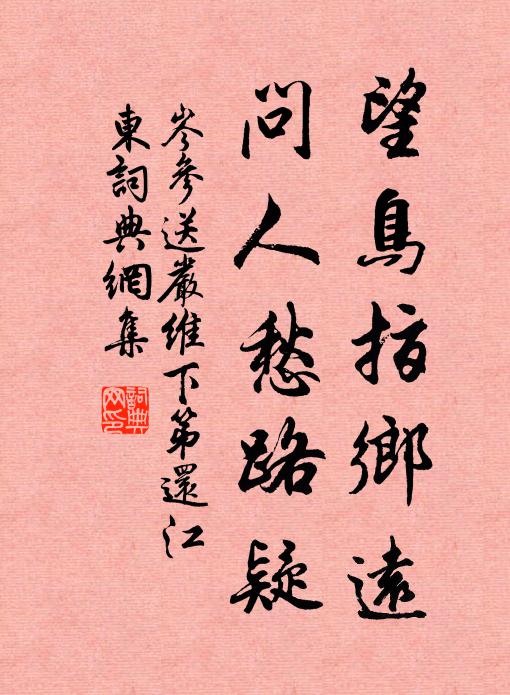 望鳥指鄉遠
問人愁路疑
岑參送嚴維下第還江
東詞典網集
詞典
网印